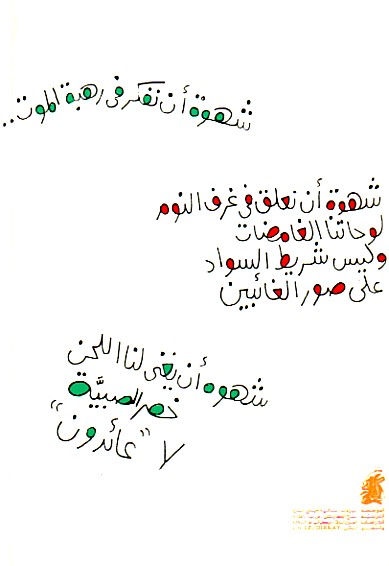 شهوة أن نفكر في رهبة الموت..
شهوة أن نعلق في غرف النوم
لوحاتنا الغامضات
وليس شريط السواد
على صور الغائبين
شهوة أن يغني لنا اللحن
خصر الصبيَّة
لا "عائدون"